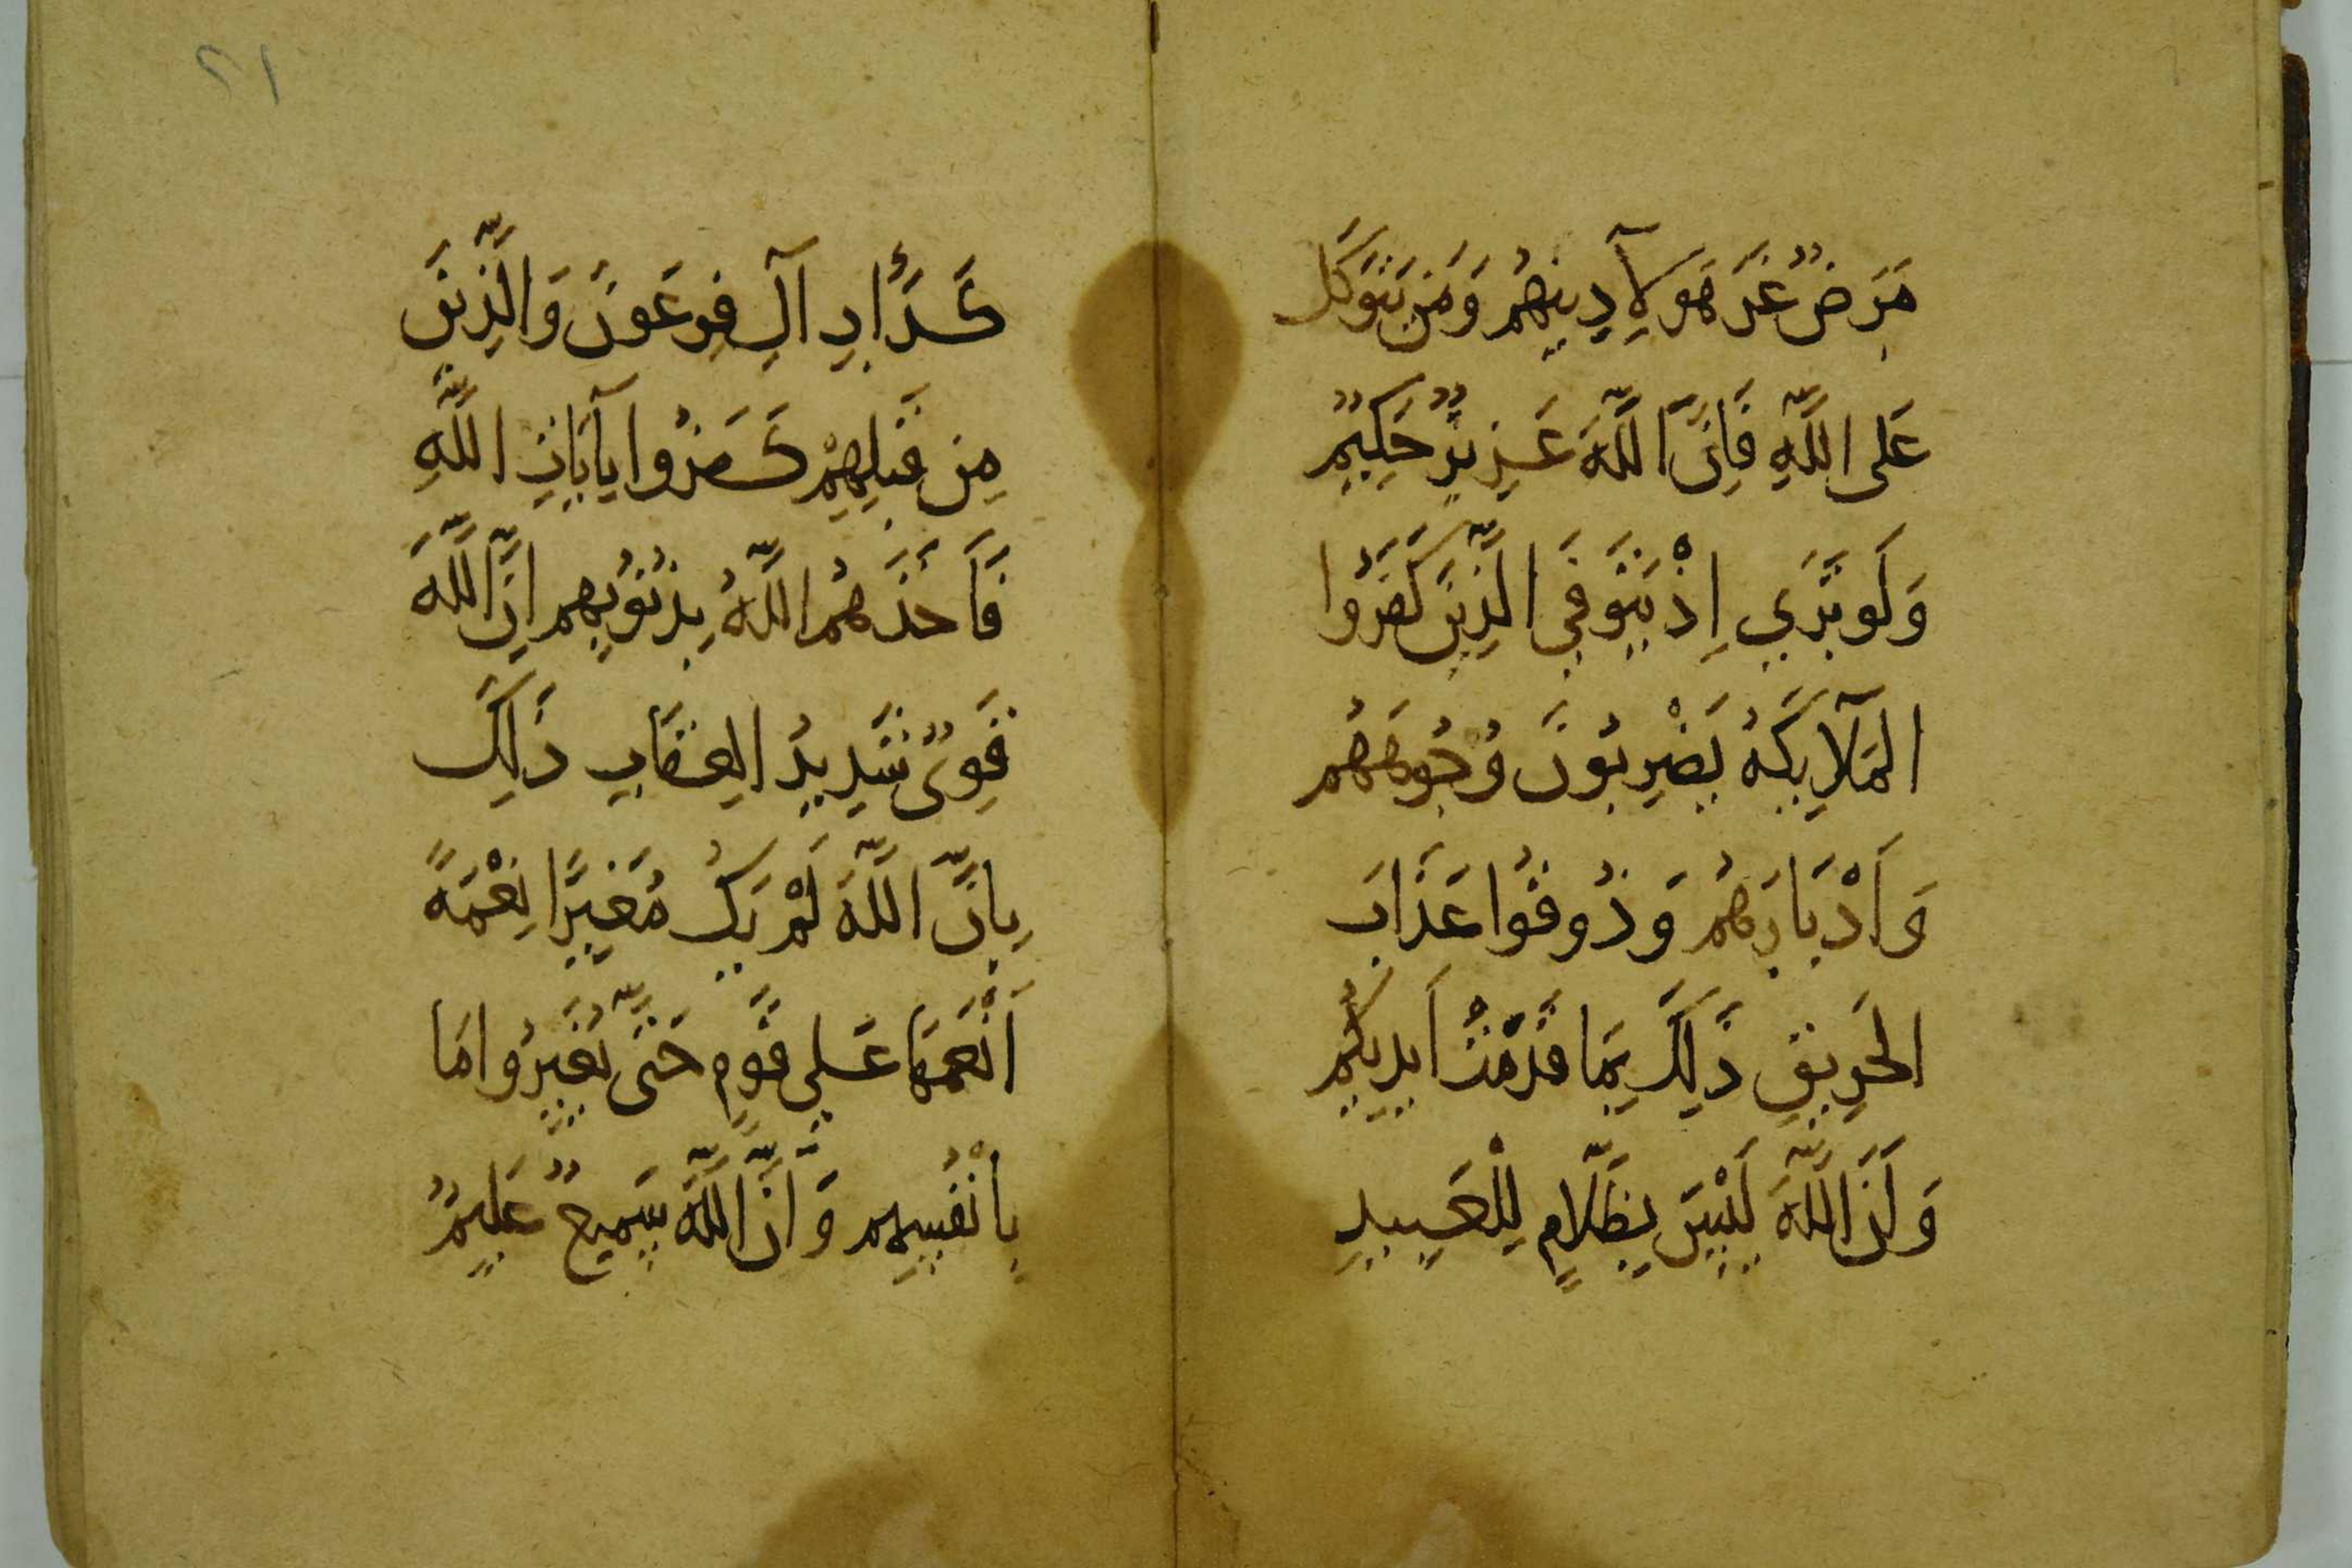 مَرَضٌ غَرَّ هَٰؤُلَآءِ دِينُهُمْ وَمَن يَتَوَكَّل
عَلَى اللَّهِ فَإِنَّ اللَّهَ عَزِيزٌ حَكِيمٌ
وَلَوْ تَرَي إِذْ يَتَوَفَّي الَّذِينَ كَفَرُوا
الْمَلَآيِكَةُ يَضْرِبُونَ وُجُوهَهُم
وَأَدْبَارَهُم وَذُوقُوا عَذَابَ
الْحَرِيقِ ذَلِكَ بِمَا قَدَّمَتْ أَيْدِيكُم
وَأَنَّ اللَّهَ لَيْسَ بِظَلَّامٍ لِلْعَبِيدِ
٢١
كَدَأْبِ آلِ فِرْعَوْنَ وَالَّذِينَ
مِن قَبْلِهِمْ كَفَرُوا بِآيَاتِ اللَّهِ
فَأَخَذَهُمُ اللَّهُ بِذُنُوبِهِم إِنَّ اللَّهَ
قَوِىٌّ شَدِيدُ الْعِقَابِ ذَلِكَ
بِأَنَّ اللَّهَ لَمْ يَكُ مُغَيِّرًا نِعْمَةً
أَنْعَمَهَا عَلَي قَوْمٍ حَتَّى يُغَيِّرُوا مَا
بِأَنْفُسِهِم وَأَنَّ اللَّهَ سَمِيعٌ عَلِيمٌ